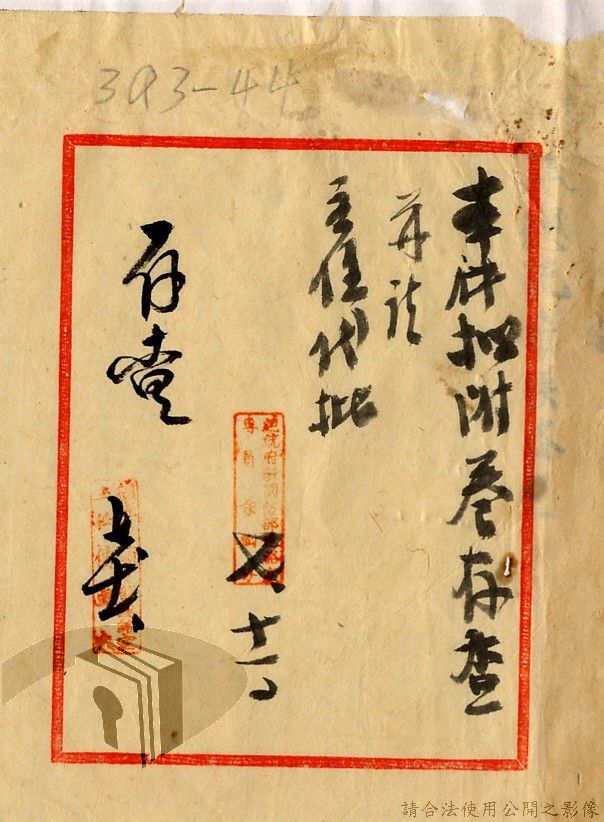 393-44
本件擬附卷存查
并請
主任代批
七、十一
存查
請合法使用公開之影像